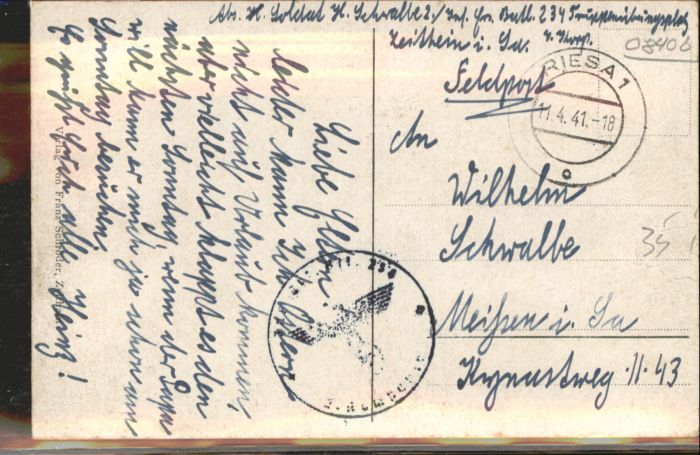 Abs. H. Soldat H. Schwalbe 2./Inf. Ers. Batl. 234 Truppenübungsplatz
Zeithain i. Sa.
08402
Feldpost
RIESA 1
11.4.41.-18
c
An
Wilhelm
Schwalbe
Meißen i. Sa
Kynastweg 11.43
35
Liebe Eltern!
leider kann ich Ostern
nicht auf Urlaub kommen,
aber vielleicht klappt es den
nächsten Sonntag, wenn der Papa
will kann er mich ja schon am
Sonntag besuchen.
Es grüßt Euch alle Heinz!
Verlag von Franz Schröder,